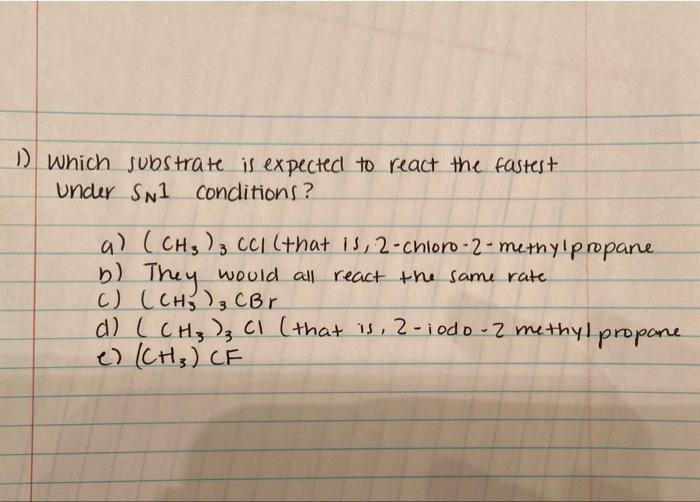 1) Which substrate is expected to react the fastest
under SN1 conditions?
a) (CH3)3 CCl (that is, 2-chloro-2-methylpropane
b) They would all react the same rate
c) (CH3)3 CBr
d) (CH3)3 CI (that is, 2-iodo-2 methyl propane
e) (CH3) CF